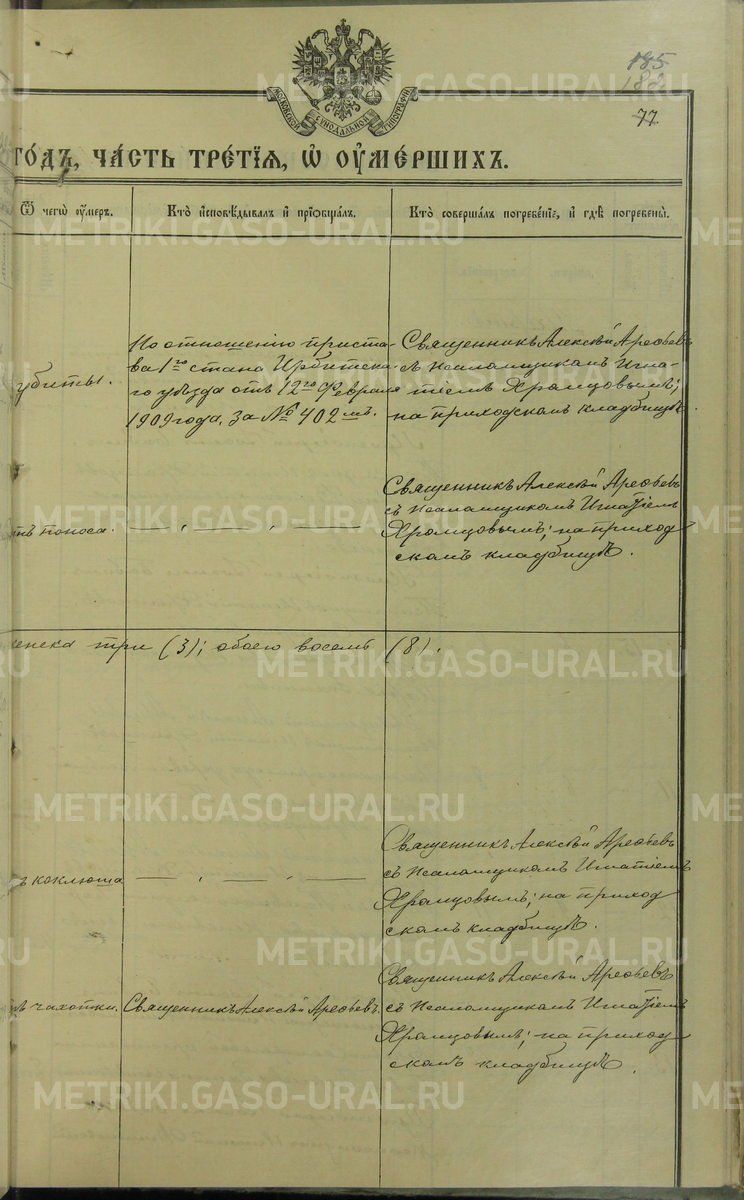 185
182
77.
МОСКОВСКОЙ СѴНОДАЛЬНОЙ ТИПОГРАФІИ
ГО́ДЪ, ЧА́СТЬ ТРЕ́ТІѦ, Ѡ҆ ОУ҆МЕ́РШИХЪ.
Ѿ чегѡ̀ оу҆́меръ.
Кто̀ и҆сповѣ́дывалъ и҆ прїѡбща́лъ.
Кто̀ соверша́лъ погребе́нїе, и҆ гдѣ̀ погребены̀.
убиты.
По отношенію приста-
ва 1го стана Ирбитска-
го уѣзда отъ 12го Февраля
1909 года, за № 402мъ.
Священникъ Алексѣй Арефьевъ
съ псаломщикомъ Игна-
тіемъ Храмцовымъ;
на приходскомъ кладбищѣ
отъ поноса.
Священникъ Алексѣй Арефьевъ
съ псаломщикомъ Игнатіемъ
Храмцовымъ; на приход
скомъ кладбищѣ.
енска три (3); обоего восемь (8).
ъ коклюша
Священникъ Алексѣй Арефьевъ
съ псаломщикомъ Игнатіемъ
Храмцовымъ; на приход
скомъ кладбищѣ.
чахотки.
Священникъ Алексѣй Арефьевъ.
Священникъ Алексѣй Арефьевъ
съ псаломщикомъ Игнатіемъ
Храмцовымъ; на приход
скомъ кладбищѣ.
METRIKI.GASO-URAL.RU